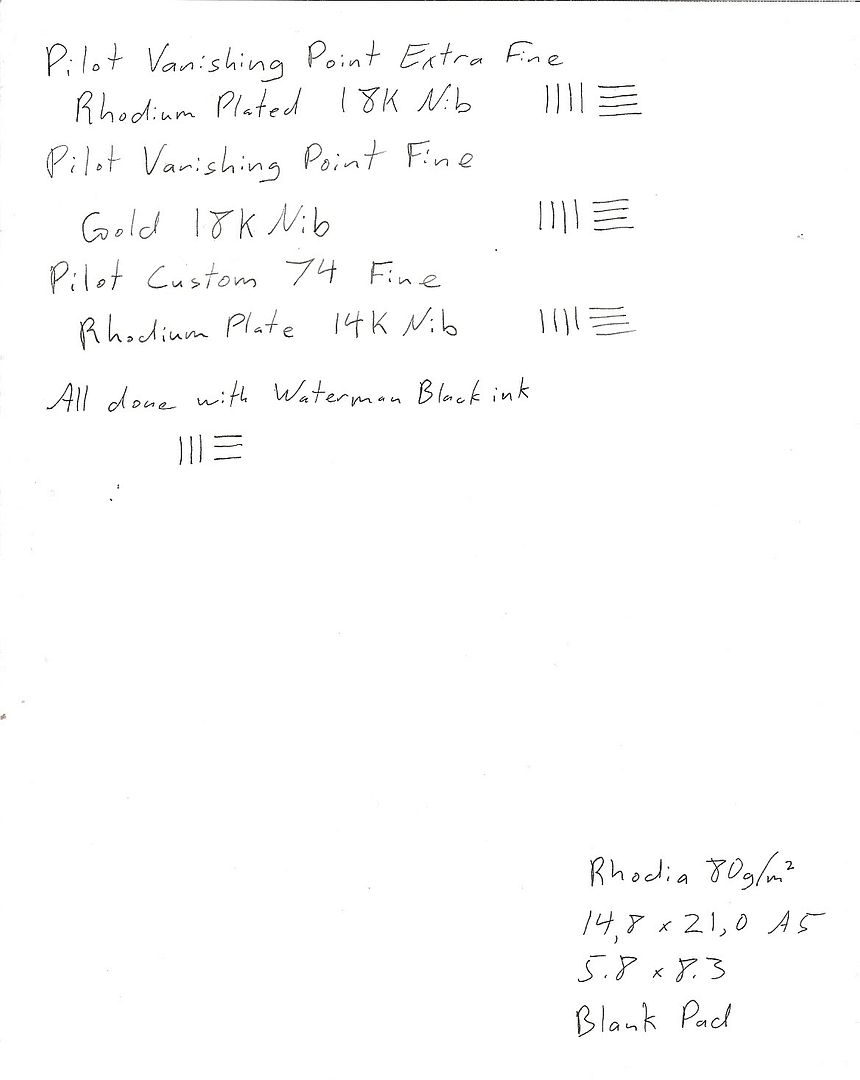 Pilot Vanishing Point Extra Fine
Rhodium Plated 18K Nib
Pilot Vanishing Point Fine
Gold 18K Nib
Pilot Custom 74 Fine
Rhodium Plate 14K Nib
All done with Waterman Black ink
Rhodia 80g/m²
14,8 x 21,0 A5
5.8 x 8.3
Blank Pad